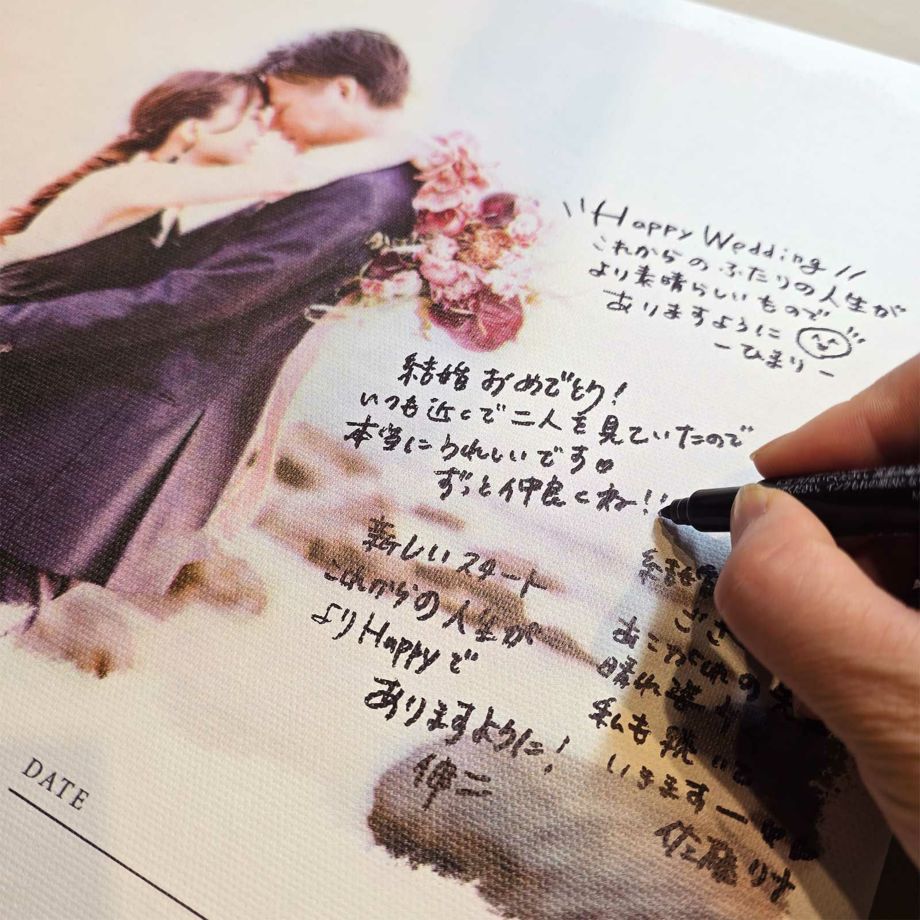 \\Happy Wedding//
これからのふたりの人生が
より素晴らしいもので
ありますように
ーひまりー
結婚おめでとう!
いつも近くで二人を見ていたので
本当にうれしいです♡
ずっと仲良くね!!
新しいスタート
これからの人生が
よりHappyで
ありますように!
伸二
結婚
ござ
あこがれの
晴れ姿
私も
いきますー
佐藤りな
DATE